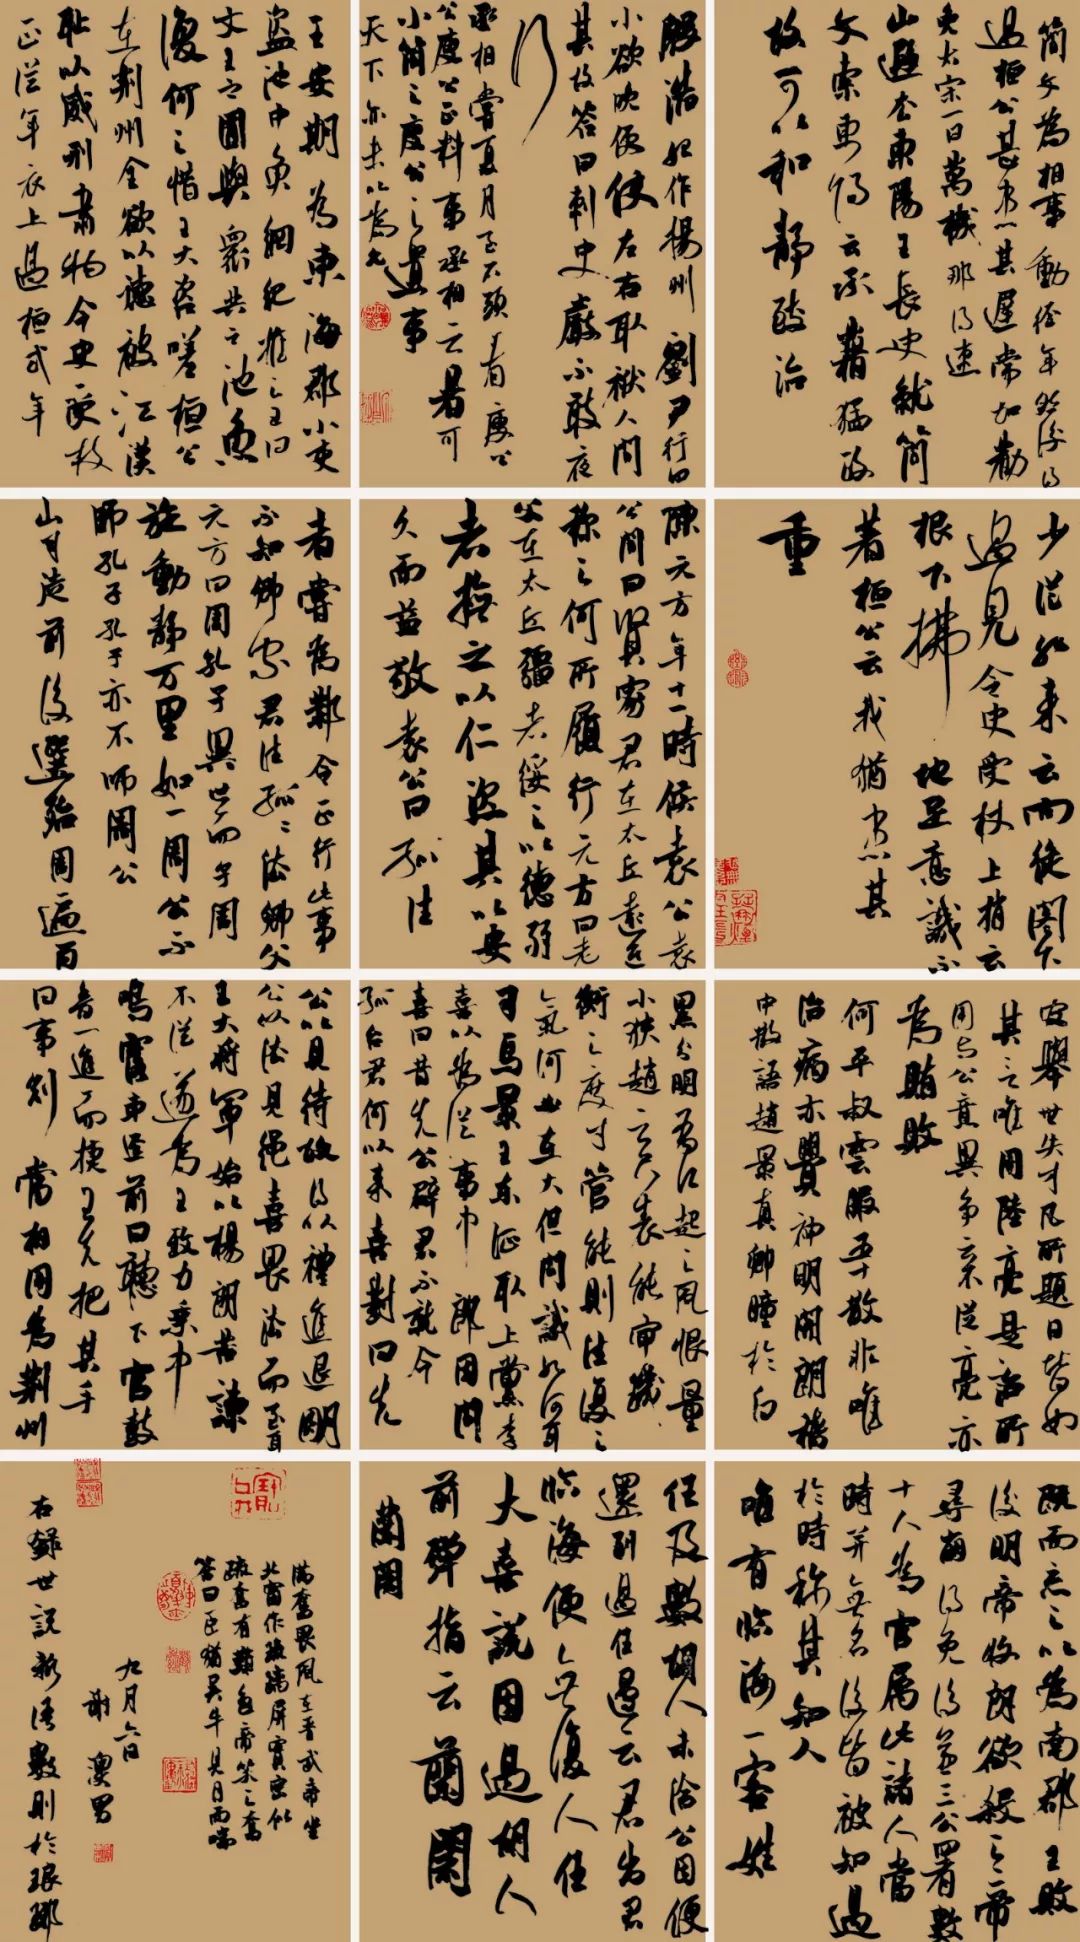 簡文為相事動經年然後得
過桓公甚患其遲常加勸
免太宗一日萬機那得速
山遐去東陽王長史就簡
文索東陽云承藉猛政
故可以和靜致治
殷浩始作揚州劉尹行日
小欲晚便使左右取襆人問
其故答曰刺史嚴不敢夜
行
丞相嘗夏月至石頭看庾公
公庾公正料事丞相云暑可
小簡之庾公公之遺事
天下亦未以為允
王安期為東海郡小吏
盜池中魚綱紀推之王曰
文王之囿與衆共之池魚
復何之惜王大咨嗟桓公
在荆州全欲以德被江漢
恥以威刑肅物令史受杖
正從年衣上過桓式年
少從外来云向從閣下
過見令史受杖上捎云
根下拂地足意譏不
著桓公云我猶患其
重
陳元方年十一時候袁公袁
公問曰賢家君在太丘遠近
稱之何所履行元方曰老
父在太丘彊者綏之以德弱
者撫之以仁恣其以安
久而益敬袁公曰孤往
者嘗為鄴令正行此事
不知卿家君法孤孤法卿父
元方曰周孔子異世而出周
旋動靜万里如一周公不
師孔子孔子亦不師周公
山司徒前後選殆周遍百
官舉世失才凡所題目皆如
其言唯用陸亮是詔所
用与公意異爭之不從亮亦
為賄敗
何平叔雲服五石散非唯
治病亦覺神明開朗嵇
中散語趙景真卿瞳於白
黑分明有白起之風恨量
小狹趙云尺表能審璣
衡之度寸管能測往復之
氣何必在大但問識如何耳
司馬景王東征取上黨李
喜以為從事中郎因問
喜曰昔先公辟君不就今
孤召君何以来喜對曰先
公以見待故得以禮進退明
公以法見繩喜畏法而至耳
王大將軍始下楊朗苦諫
不從遂為王致力乘中
鳴雲車逕前曰聽下官鼓
音一進而捷王先把其手
曰事剋當相用為荆州
既而忘之以為南郡王敗
後明帝收朗欲殺之帝
尋崩得免後兼三公署數
十人為官屬此諸人當
時并無名後皆被知遇
於時稱其知人
唯有臨海一客姓
任及數胡人未洽公因便
還到過任邊云君出君
臨海便無復人任
大喜説因過胡人
前彈指云蘭闍
蘭闍
滿奮畏風在晋武帝坐
北窗作琉璃屏實密似
疎奮有難色帝笑之奮
答曰臣猶吳牛見月而喘
九月六日
謝澳男
右錄世説新語數則於琅琊